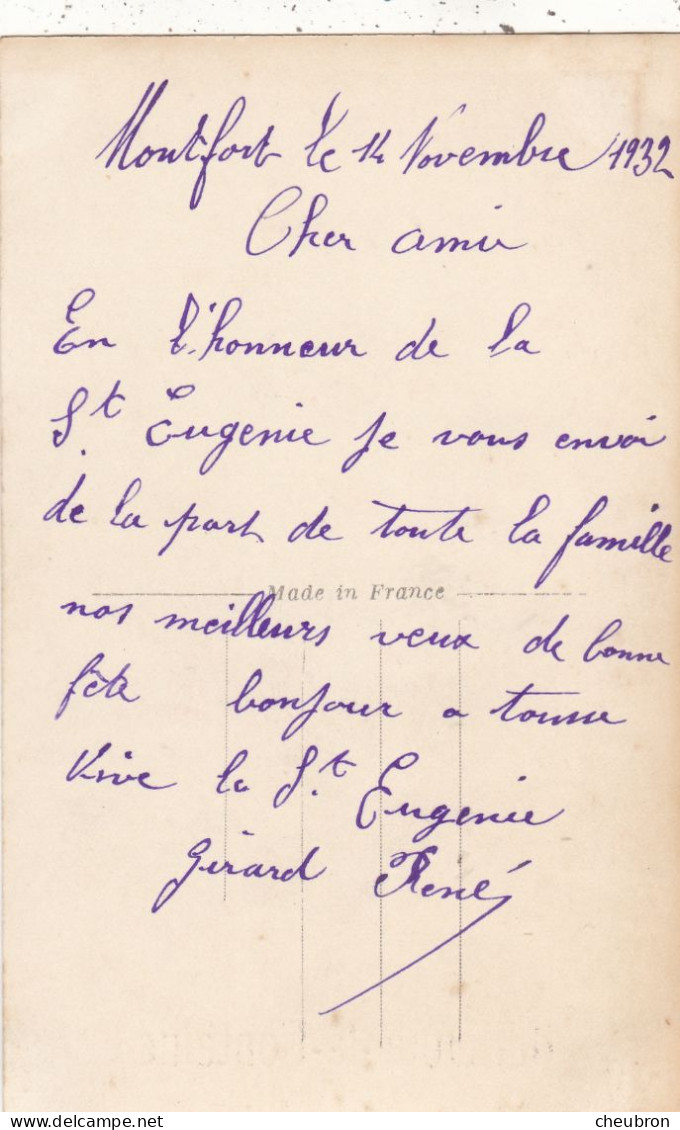 Montfort le 14 Novembre 1932
Cher amie
En l'honneur de la
St Eugenie je vous envoi
de la part de toute la famille
Made in France
nos meilleurs veux de bonne
fête bonjour a tousse
Vive la St Eugenie
Girard René
cheubron